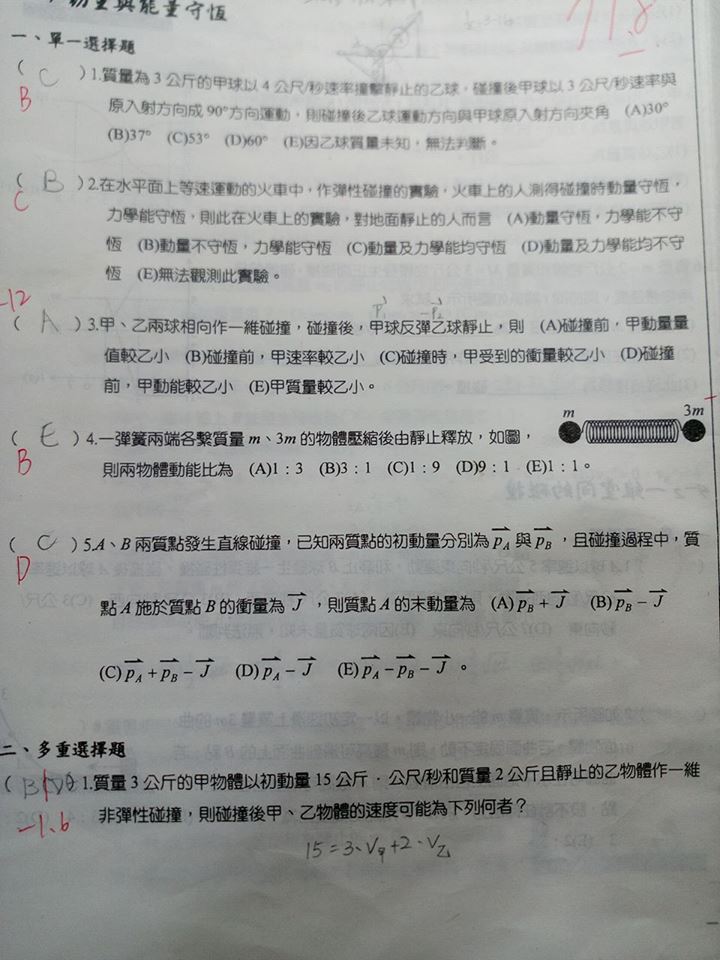 動量與能量守恆
71.8
一、單一選擇題
( C )1.質量為 3 公斤的甲球以 4 公尺/秒速率撞擊靜止的乙球，碰撞後甲球以 3 公尺/秒速率與
B
原入射方向成 90°方向運動，則碰撞後乙球運動方向與甲球原入射方向夾角 (A)30°
(B)37° (C)53° (D)60° (E)因乙球質量未知，無法判斷。
( B )2.在水平面上等速運動的火車中，作彈性碰撞的實驗，火車上的人測得碰撞時動量守恆，
C
力學能守恆，則此在火車上的實驗，對地面靜止的人而言 (A)動量守恆，力學能不守
恆 (B)動量不守恆，力學能守恆 (C)動量及力學能均守恆 (D)動量及力學能均不守
恆 (E)無法觀測此實驗。
-12
P₁ -P₂
( A )3.甲、乙兩球相向作一維碰撞，碰撞後，甲球反彈乙球靜止，則 (A)碰撞前，甲動量量
值較乙小 (B)碰撞前，甲速率較乙小 (C)碰撞時，甲受到的衝量較乙小 (D)碰撞
前，甲動能較乙小 (E)甲質量較乙小。
m 3m
( E )4.一彈簧兩端各繫質量 m、3m 的物體壓縮後由靜止釋放，如圖，
B
則兩物體動能比為 (A)1：3 (B)3：1 (C)1：9 (D)9：1 (E)1：1。
( C )5.A、B 兩質點發生直線碰撞，已知兩質點的初動量分別為 p⃗A 與 p⃗B，且碰撞過程中，質
D
點 A 施於質點 B 的衝量為 J⃗，則質點 A 的末動量為 (A) p⃗B + J⃗ (B) p⃗B − J⃗
(C) p⃗A + p⃗B − J⃗ (D) p⃗A − J⃗ (E) p⃗A − p⃗B − J⃗。
二、多重選擇題
( B )1.質量 3 公斤的甲物體以初動量 15 公斤．公尺/秒和質量 2 公斤且靜止的乙物體作一維
-1.6
非彈性碰撞，則碰撞後甲、乙物體的速度可能為下列何者？
15=3·V甲+2·V乙